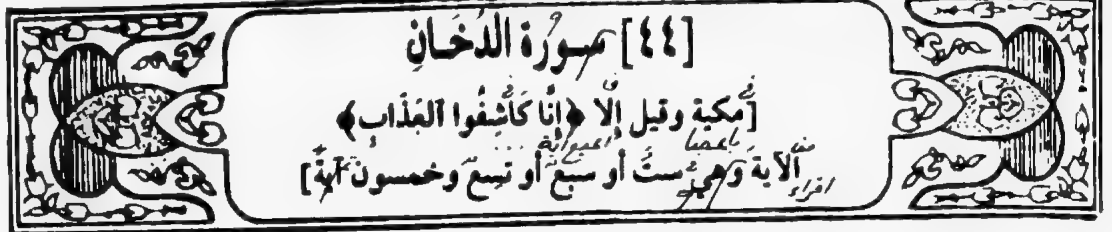 [٤٤] سورة الدُخَانِ
[مكية وقيل إلَّا ﴿إِنَّا كَاشِفُوا ٱلعَذَابِ﴾
الآية وهي ست أو سبع أو تسع وخمسون آية]